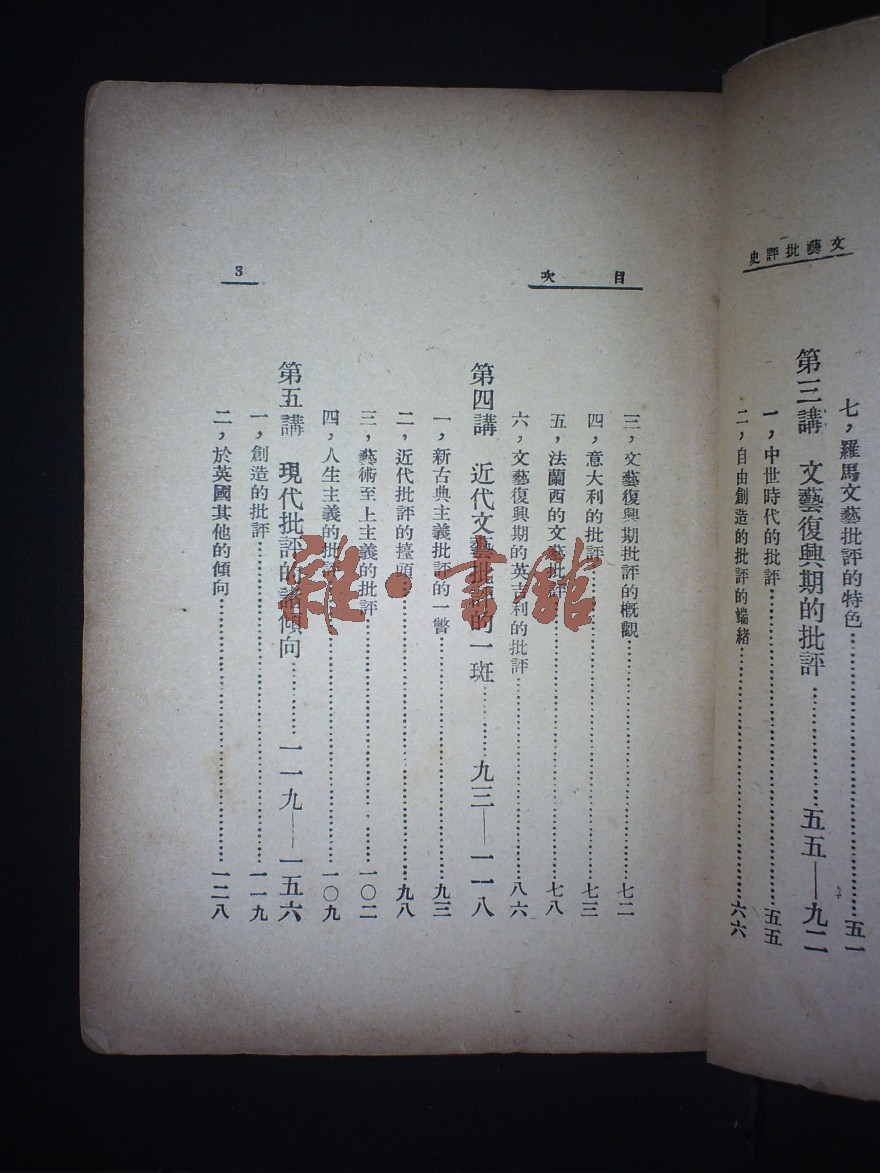 文藝批評史
七，羅馬文藝批評的特色……五一
第三講　文藝復興期的批評……五五—九二
一，中世時代的批評……五五
二，自由創造的批評的端緒……六六
目次
3
三，文藝復興期批評的概觀……七二
四，意大利的批評……七三
五，法蘭西的文藝批評……七八
六，文藝復興期的英吉利的批評……八六
第四講　近代文藝批評的一斑……九三—一一八
一，新古典主義批評的一瞥……九三
二，近代批評的擡頭……九八
三，藝術至上主義的批評……一〇二
四，人生主義的批評……一〇九
第五講　現代批評的諸傾向……一一九—一五六
一，創造的批評……一一九
二，於英國其他的傾向……一二八
雜·書館